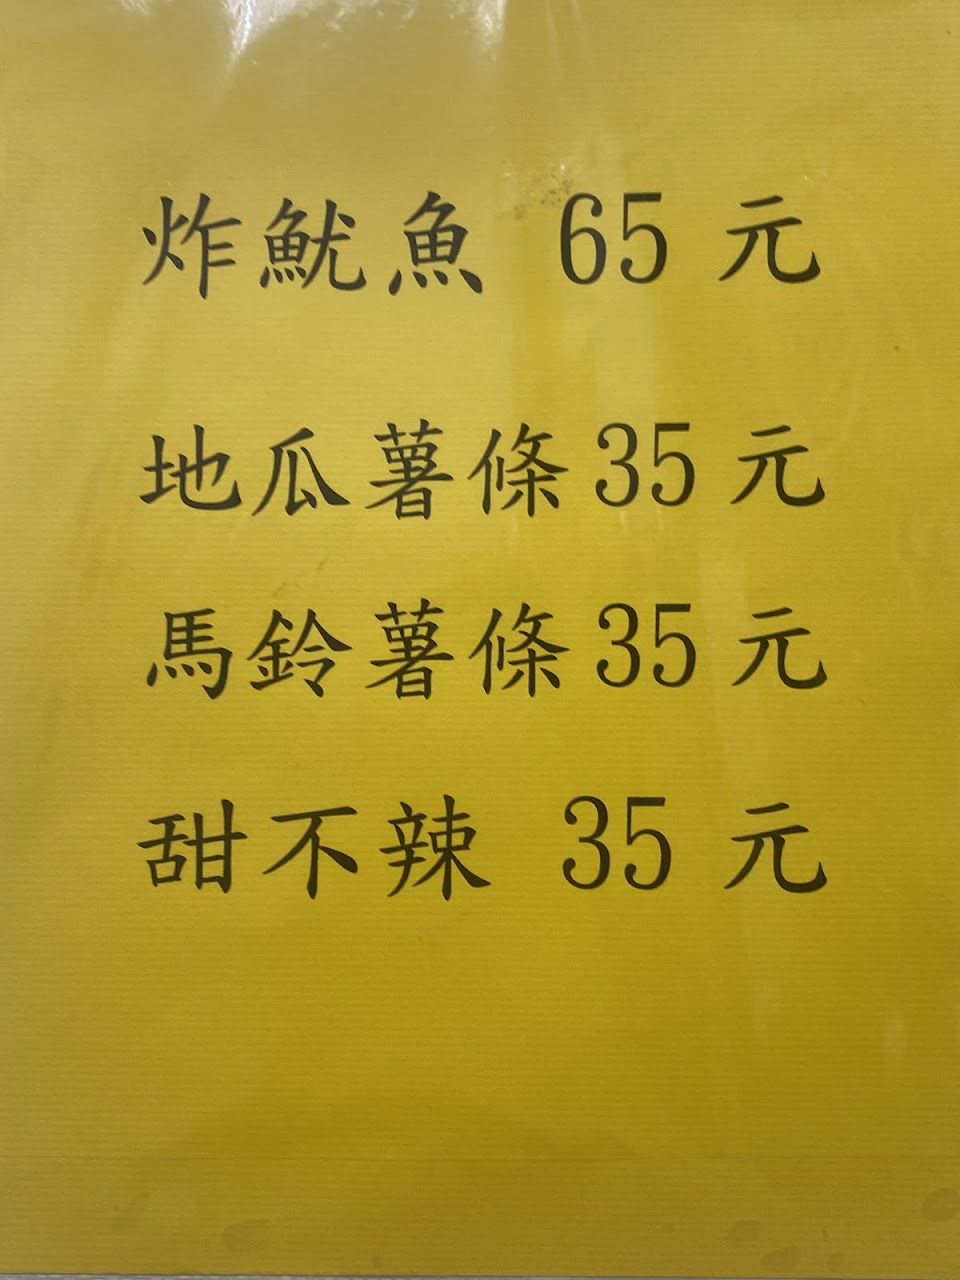 炸魷魚 65 元
地瓜薯條 35 元
馬鈴薯條 35 元
甜不辣 35 元